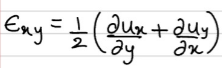 ϵxy = 1/2 (∂ux/∂y + ∂uy/∂x)